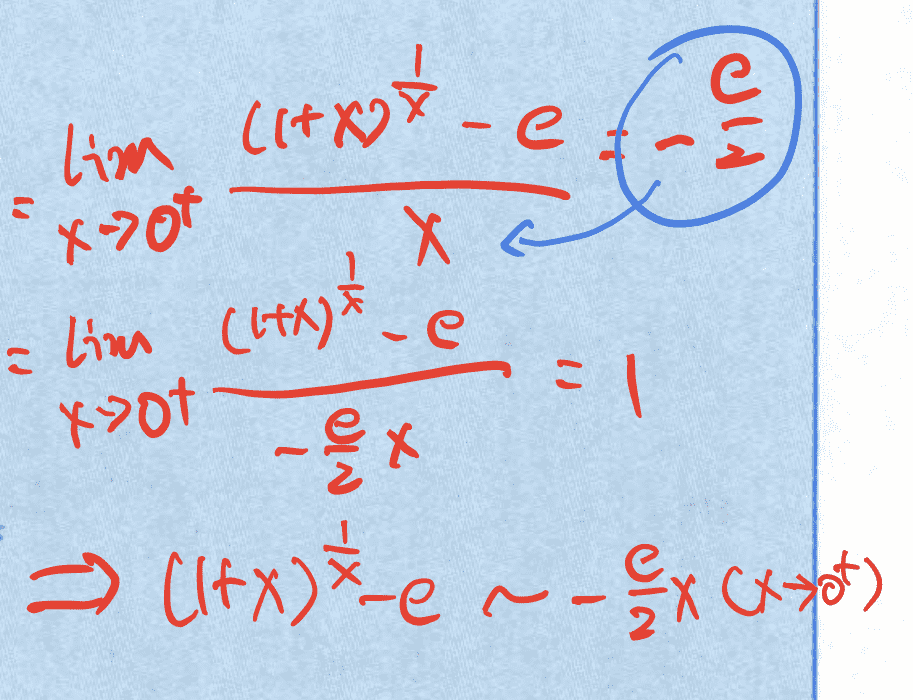 = lim x→0⁺ ((1+x)^(1/x) - e)/x = -e/2
= lim x→0⁺ ((1+x)^(1/x) - e)/(-e/2 x) = 1
⇒ (1+x)^(1/x) - e ~ -e/2 x (x→0⁺)